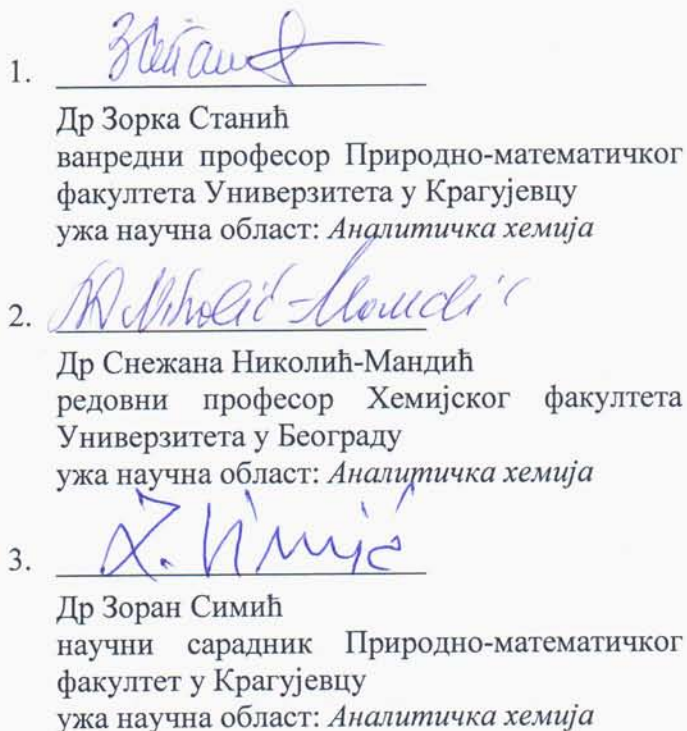 1.
Др Зорка Станић
ванредни професор Природно-математичког
факултета Универзитета у Крагујевцу
ужа научна област: Аналитичка хемија
2.
Др Снежана Николић-Мандић
редовни професор Хемијског факултета
Универзитета у Београду
ужа научна област: Аналитичка хемија
3.
Др Зоран Симић
научни сарадник Природно-математичког
факултет у Крагујевцу
ужа научна област: Аналитичка хемија